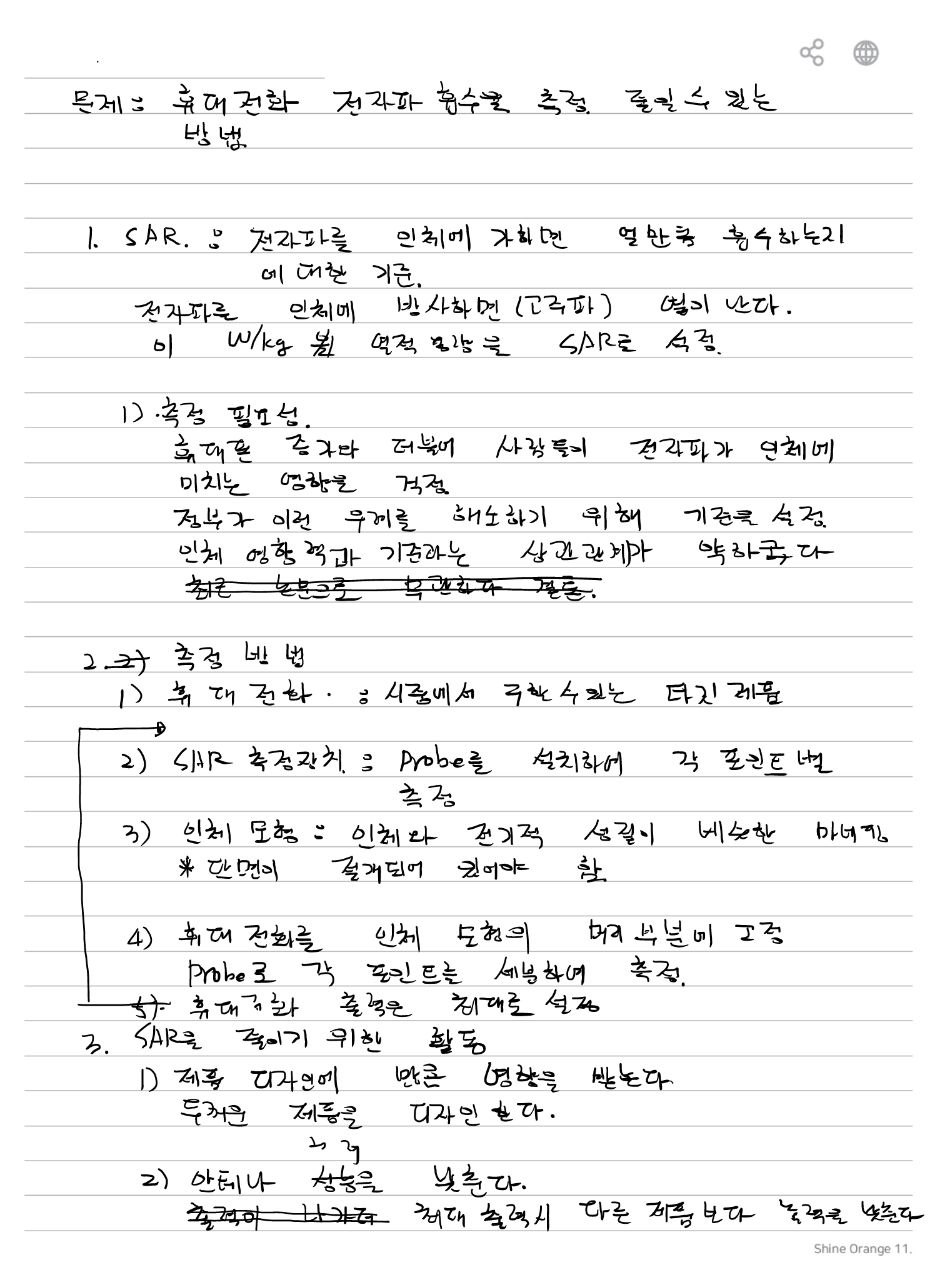 문제 : 휴대전화 전자파 흡수율 측정. 줄일 수 있는
방법
1. SAR. : 전자파를 인체에 가하면 얼만큼 흡수하는지
에 대한 기준.
전자파를 인체에 방사하면 (고주파) 열이 난다.
이 W/kg 열적 을 SAR로 측정.
1) 측정 필요성.
휴대폰 증가와 더불어 사람들이 전자파가 인체에
미치는 영향을 걱정
정부가 이런 우려를 해소하기 위해 기준을 설정
인체 영향 기준과는 상관관계가 약하
최근 논문으로 무관하다 결론.
2. 2) 측정 방법
1) 휴대전화. : 시중에서 구할 수 있는 타깃 제품
2) SAR 측정장치. : Probe를 설치하여 각 포인트 별
측정
3) 인체 모형 : 인체와 전기적 성질이 비슷한 마네킹
* 단면이 절개되어 있어야 함
4) 휴대전화를 인체 모형의 머리 부분에 고정
Probe로 각 포인트를 세분하여 측정.
5). 휴대전화 출력은 최대로 설정
3. SAR을 줄이기 위한 활동
1) 제품 디자인에 많은 영향을 받는다
두꺼운 제품을 디자인 한다.
출력
2) 안테나 성능을 낮춘다.
출력이 최대 출력시 다른 제품보다 출력을 낮춘다
Shine Orange 11.